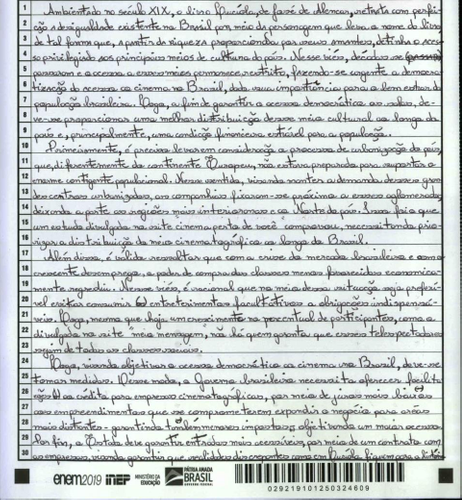 Ambientado no século XIX, o livro Lucíola, de José de Alencar, retrata com perfei-
ção a desigualdade existente no Brasil por meio da personagem que leva o nome do livro
de tal forma que, a partir da riqueza proporcionada por seus amantes, detinha o aces-
so privilegiado aos principais meios de cultura do país. Nesse viés, décadas se
passaram e o acesso a esses meios permanece restrito, fazendo-se urgente a democra-
tização do acesso ao cinema no Brasil, dada sua importância para o bem estar da
população brasileira. Logo, a fim de garantir o acesso democrático ao saber, de-
ve-se proporcionar uma melhor distribuição desse meio cultural ao longo do
país e, principalmente, uma condição financeira estável para a população.
Primeiramente, é preciso levar em consideração o processo de urbanização do país,
que, diferentemente do continente Europeu, não estava preparado para suportar o
enorme contigente populacional. Nesse sentido, visando manter a demanda desses gran-
des centros urbanizados, as companhias fixaram-se próximo a esses aglomerados,
deixando a parte as regiões mais interioranas e ao Norte do país. Isso faz que
um estudo divulgado no site cinema perto de você comprovou, necessitando prio-
rizar a distribuição do meio cinematográfico ao longo do Brasil.
Além disso, é válido ressaltar que com a crise do mercado brasileiro e com o
crescente desemprego, o poder de compra das classes menos favorecidas economica-
mente regrediu. Nesse viés, é racional que na meio dessa situação seja preferí-
vel evitar consumir entreterimentos facultativos a obrigações indispensá-
veis. Logo, mesmo que haja um crescimento no percentual de participantes, como o
divulgado no site "meio mensagem", não há quem garanta que esses telespectadores
sejam de todas as classes sociais.
Logo, visando objetivar o acesso democrático ao cinema no Brasil, deve-se
tomar medidas. Desse modo, o Governo brasileiro necessita oferecer facilita-
ções a crédito para empresas cinematográficas, por meio de juros mais baixos
aos empreendimentos que se comprometerem expandir o negócio para áreas
mais distantes - garantindo também menores impostos objetivando um maior acesso.
Por fim, o Estado deve garantir entradas mais acessíveis, por meio de um contrato com
as empresas, visando garantir que realidades discrepantes como em Lucíola fiquem para a
enem2019 inep MINISTÉRIO DA EDUCAÇÃO PÁTRIA AMADA BRASIL GOVERNO FEDERAL
029219101250324609